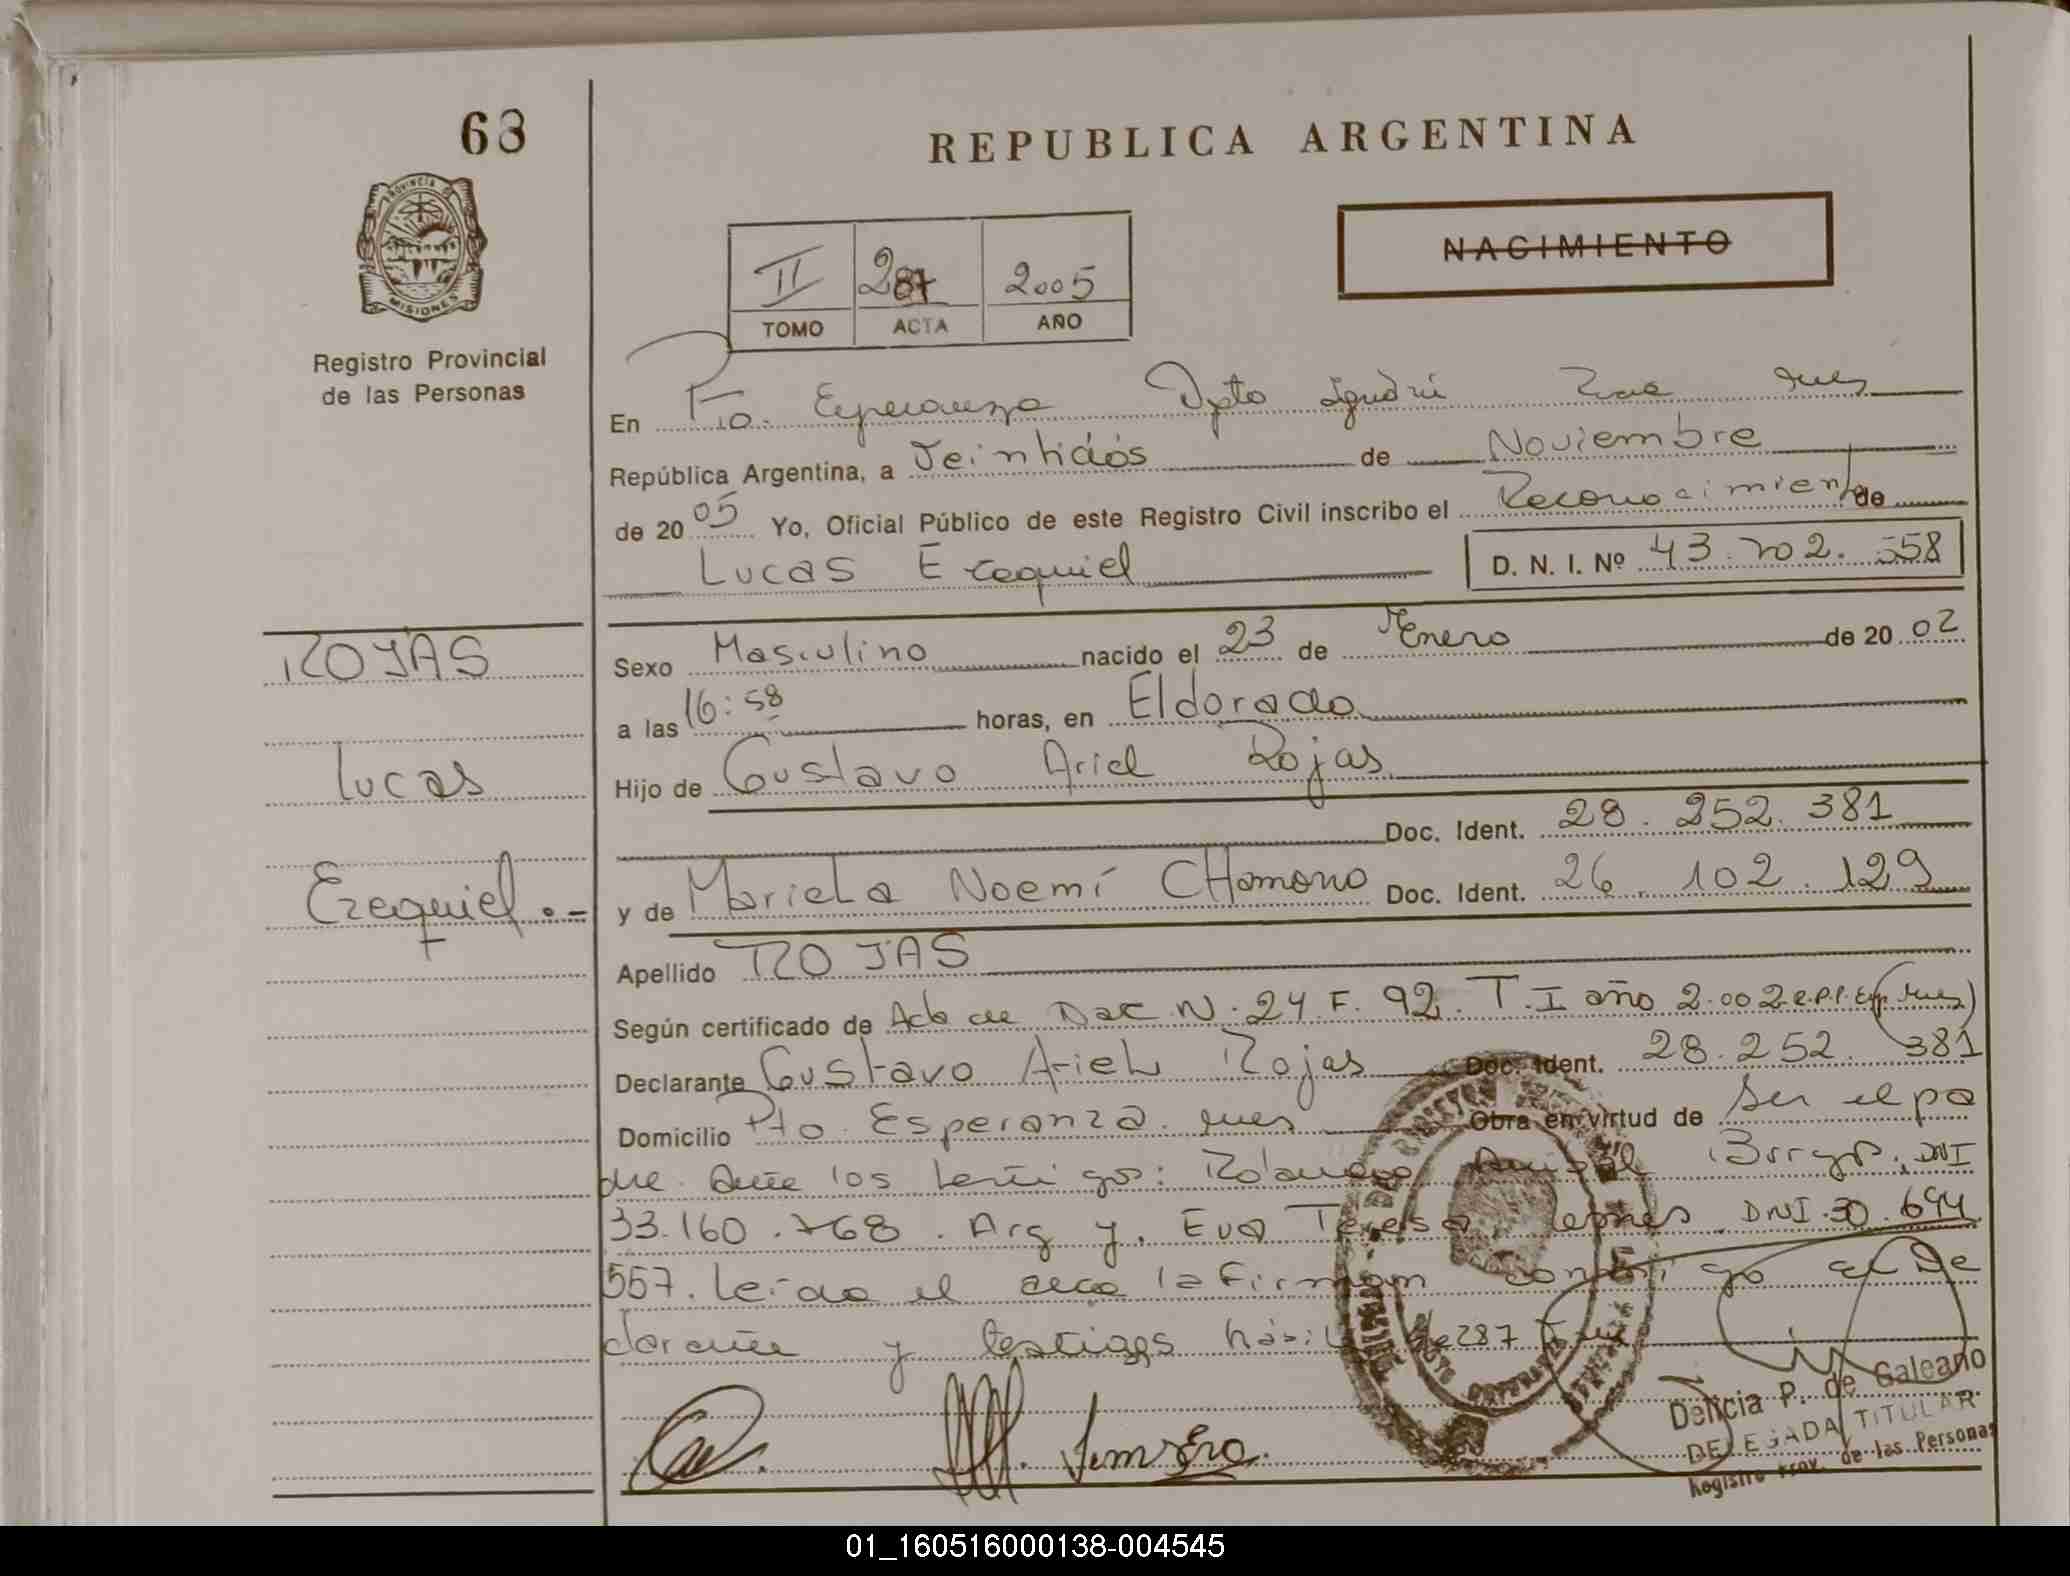 63
REPUBLICA ARGENTINA
PROVINCIA DE
MISIONES
Registro Provincial
de las Personas
NACIMIENTO
II 287 2005
TOMO ACTA AÑO
En Pto. Esperanza Dpto Iguazú
República Argentina, a Veintidós de Noviembre
de 20 05 Yo, Oficial Público de este Registro Civil inscribo el Reconocimiento de
Lucas Ezequiel D. N. I. Nº 43.702.558
ROJAS
Lucas
Ezequiel .-
Sexo Masculino nacido el 23 de Enero de 20 02
a las 16:58 horas, en Eldorado
Hijo de Gustavo Ariel Rojas
Doc. Ident. 28.252.381
y de Mariela Noemí CHamorro Doc. Ident. 26.102.129
Apellido ROJAS
Según certificado de Acta de Nac N. 24 F. 92. T. I año 2.002
Declarante Gustavo Ariel Rojas Doc. Ident. 28.252.381
Domicilio Pto. Esperanza. Obra en virtud de ser el pa
dre. Ante los testigos: DNI
33.160.768. Arg y. Eva Teresa DNI.30.694
557. Leída el acta la Firman conmigo el De
clarante y testigos 287
Delicia P. de Galeano
DELEGADA TITULAR
Registro Prov. de las Personas
01_160516000138-004545